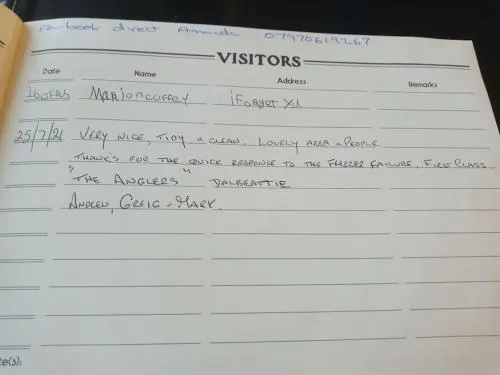 book direct Amanda 07970619267
VISITORS
Date Name Address Remarks
iForget Yu
25/7/21 VERY NICE, TIDY & CLEAN. LOVELY AREA & PEOPLE
THANKS FOR THE QUICK RESPONSE TO THE FREEZER FAILURE. FIRST CLASS
"THE ANGLERS" DALBEATTIE
ANDREW, GREIG & MARK.
te(s):